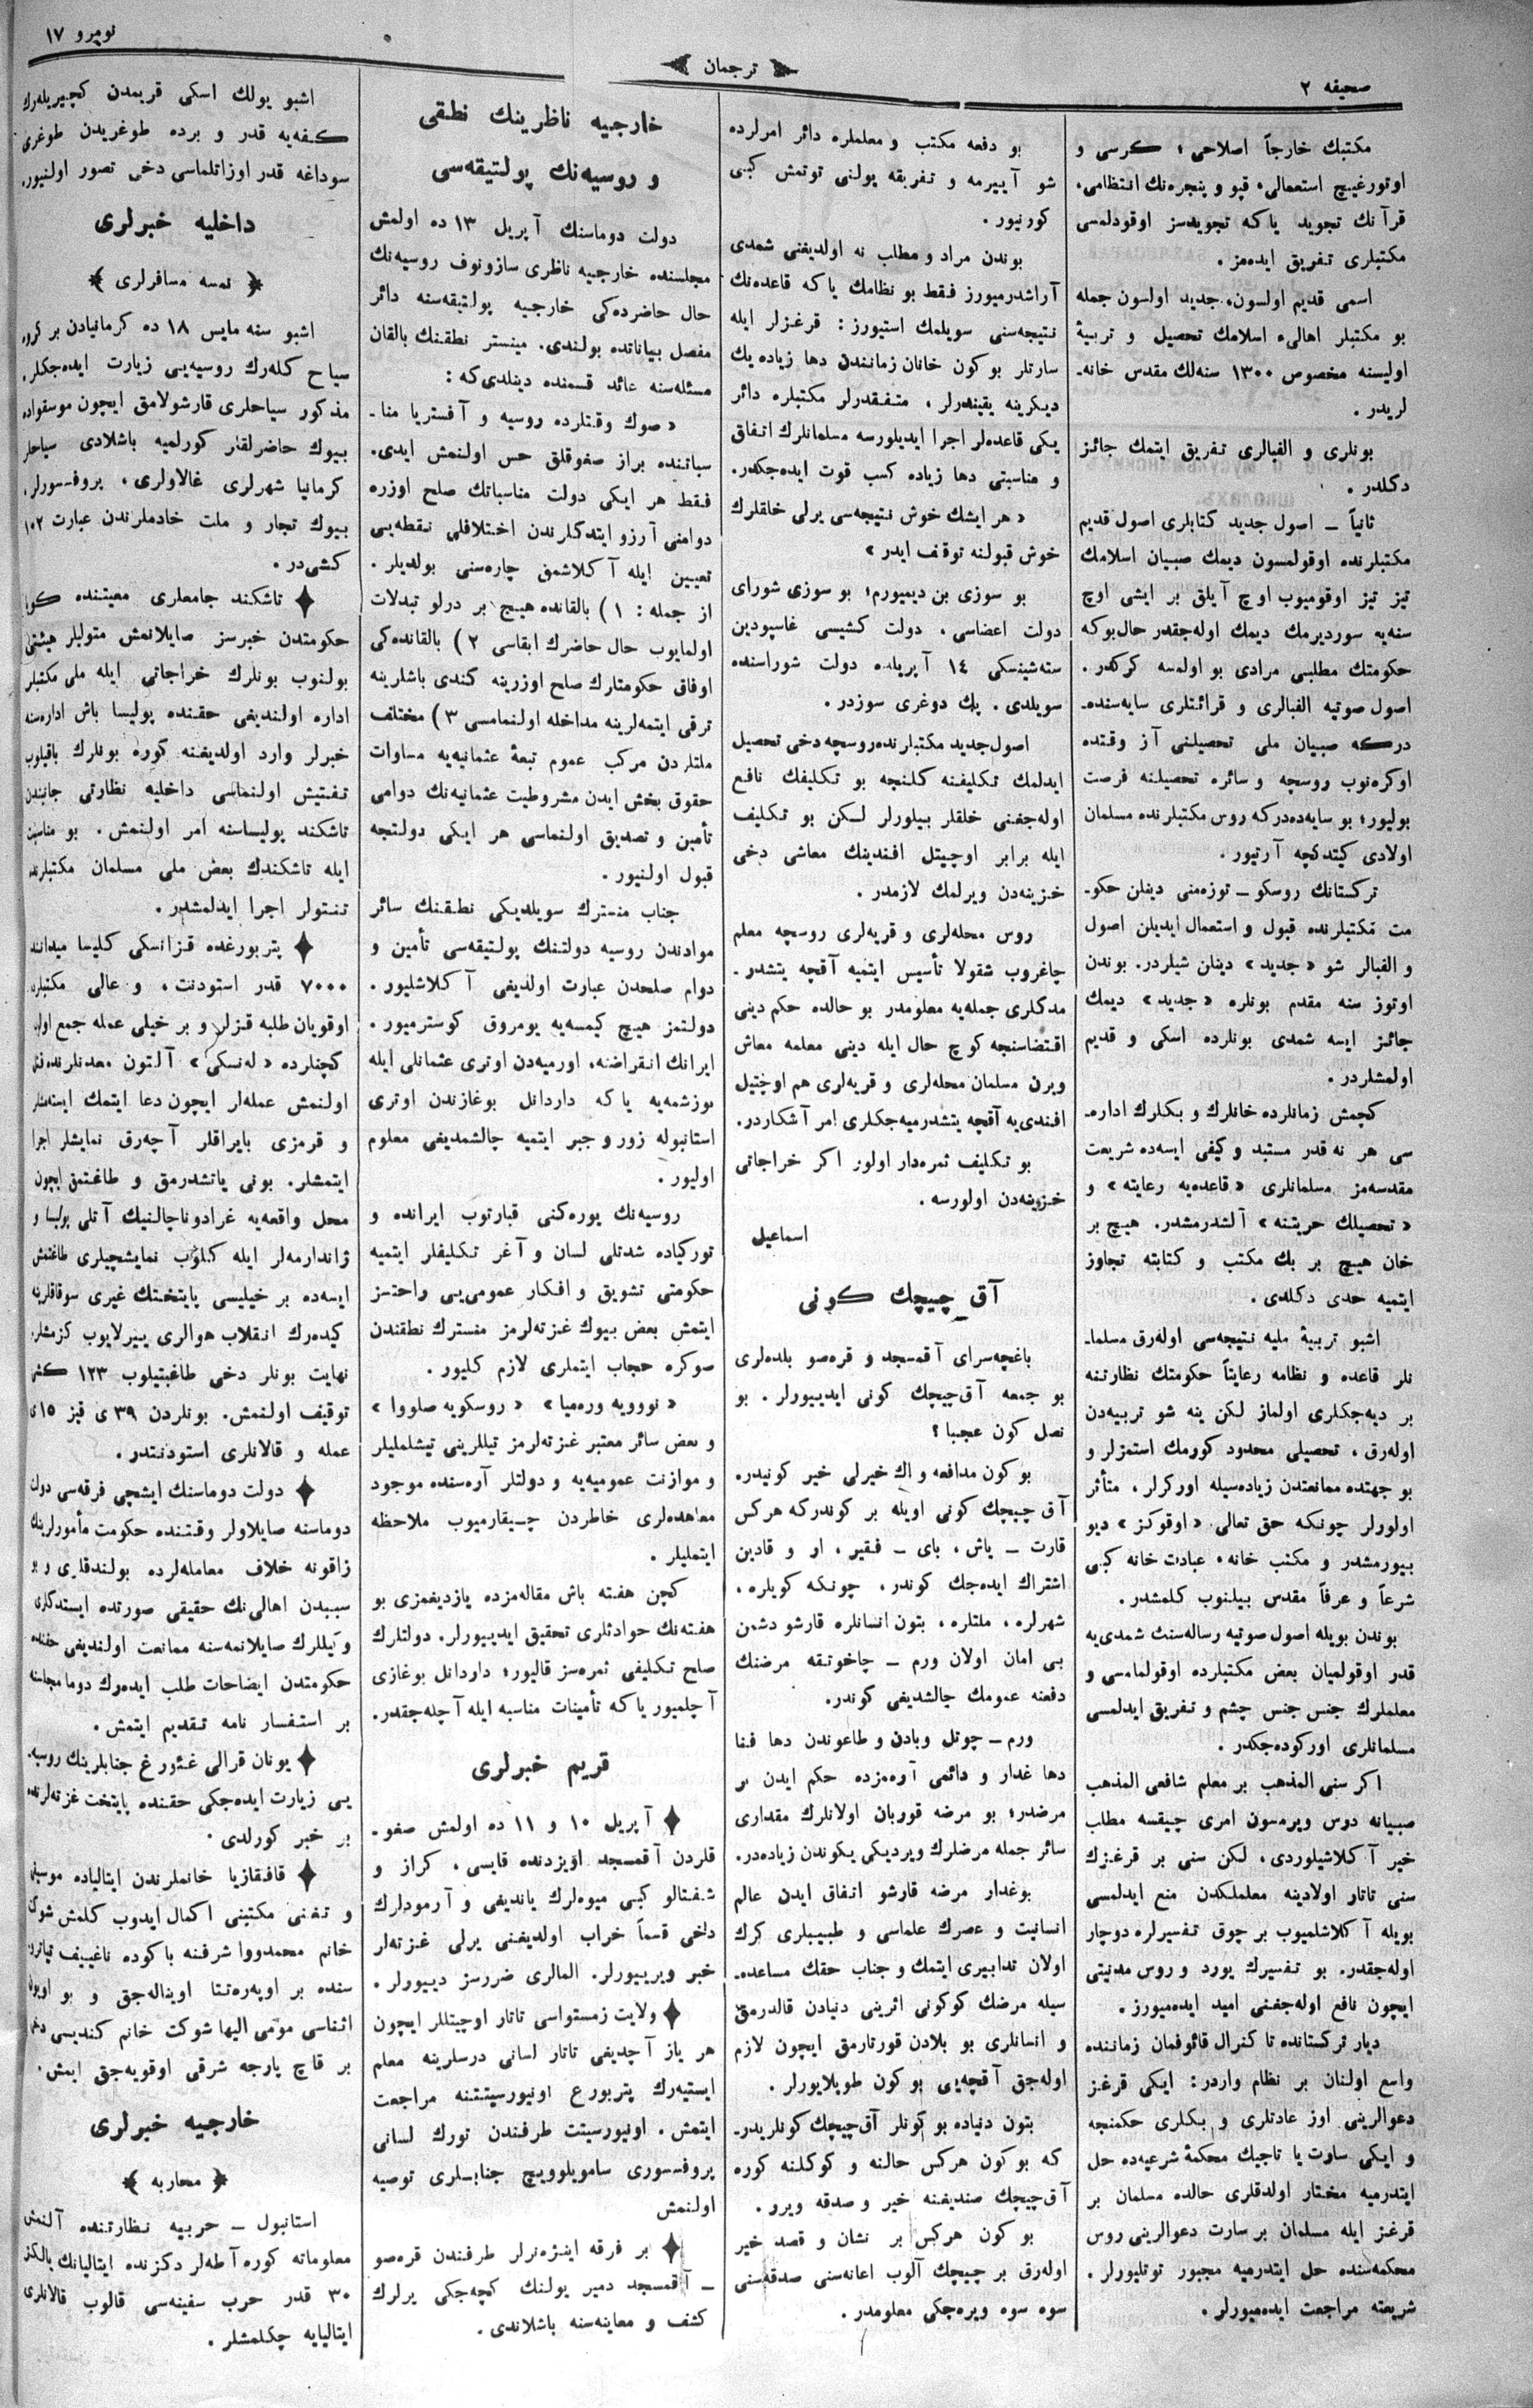 صحیفه ٢
ترجمان
نومرو ١٧
مكتبك خارجاً اصلاحی؛ كرسی و
اوتورغیچ استعمالی، قپو و پنجره‌نك انتظامی،
قرآنك تجوید یاكه تجویدسز اوقودلمسی
مكتبلری تفریق ایده‌مز.
اسمی قدیم اولسون، جدید اولسون جمله
بو مكتبلر اهالیء اسلامك تحصیل و تربیهٔ
اولیسنه مخصوص ١٣٠٠ سنه‌لك مقدس خانه‌ـ
لریدر.
بونلری و الفبالری تفریق ایتمك جائز
دكلدر.
ثانیاً ـ اصول جدید كتابلری اصول قدیم
مكتبلرنده اوقولمسون دیمك صبیان اسلامك
تیز تیز اوقومیوب اوچ آیلق بر ایشی اوچ
سنه‌یه سوردیرمك دیمك اوله‌جقدر حال‌بوكه
حكومتك مطلبی مرادی بو اولمسه كركدر.
اصول صوتیه الفبالری و قرائتلری سایه‌سنده‌ـ
دركه صبیان ملی تحصیلنی آز وقتده
اوكره‌نوب روسچه و سائره تحصیلنه فرصت
بولیور؛ بو سایه‌ده‌دركه روس مكتبلرنده مسلمان
اولادی كیتدكچه آرتیور.
تركستانك روسكو ـ توزه‌منی دینلن حكو‌ـ
مت مكتبلرنده قبول و استعمال ایدیلن اصول
و الفبالر شو «جدید» دینلن شیلردر. بوندن
اوتوز سنه مقدم بونلره «جدید» دیمك
جائز ایسه شمدی بونلرده اسكی و قدیم
اولمشلردر.
كچمش زمانلرده خانلرك و بكلرك اداره‌ـ
سی هر نه قدر مستبد و كیفی ایسه‌ده شریعت
مقدسه‌مز مسلمانلری «قاعده‌یه رعایته» و
«تحصیلك حریتنه» آلشدرمشدر. هیچ بر
خان هیچ بر بك مكتب و كتابته تجاوز
ایتمیه حدی دكلدی.
اشبو تربیهٔ ملیه نتیجه‌سی اوله‌رق مسلما‌ـ
نلر قاعده و نظامه رعایتاً حكومتك نظارتنه
بر دیه‌جكلری اولماز لكن ینه شو تربیه‌دن
اوله‌رق، تحصیلی محدود كورمك استمزلر و
بو جهتده ممانعتدن زیاده‌سیله اوركرلر، متأثر
اولورلر چونكه حق تعالی «اوقوكز» دیو
بیورمشدر و مكتب خانه، عبادت خانه كبی
شرعاً و عرفاً مقدس بیلنوب كلمشدر.
بوندن بویله اصول صوتیه رساله‌سنك شمدی‌یه
قدر اوقولمیان بعض مكتبلرده اوقولمامسی و
معلملرك جنس جنس چشم و تفریق ایدلمسی
مسلمانلری اوركوده‌جكدر.
اكر سنی المذهب بر معلم شافعی المذهب
صبیانه درس ویرمسون امری چیقسه مطلب
خیر آكلاشیلوردی، لكن سنی بر قرغزك
سنی تاتار اولادینه معلملكدن منع ایدلمسی
بویله آكلاشلمیوب بر چوق تفسیرلره دوچار
اوله‌جقدر. بو تفسیرك یورد و روس مدنیتی
ایچون نافع اوله‌جغنی امید ایده‌میورز.
دیار تركستانده تا كنرال قائوفمان زماننده
واسع اولنان بر نظام واردر: ایكی قرغز
دعوالرینی اوز عادتلری و بكلری حكمنجه
و ایكی سارت یا تاجیك محكمهٔ شرعیه‌ده حل
ایتدرمیه مختار اولدقلری حالده مسلمان بر
قرغز ایله مسلمان بر سارت دعوالرینی روس
محكمه‌سنده حل ایتدرمیه مجبور توتلیورلر.
شریعته مراجعت ایده‌میورلر.
بو دفعه مكتب و معلملره دائر امرلرده
شو آییرمه و تفریقه یولنی توتمش كبی
كورنیور.
بوندن مراد و مطلب نه اولدیغنی شمدی
آراشدرمیورز فقط بو نظامك یاكه قاعده‌نك
نتیجه‌سنی سویلمك استیورز: قرغزلر ایله
سارتلر بوكون خانان زمانندن دها زیاده یك
دیكرینه یقیندرلر، متفقدرلر مكتبلره دائر
یكی قاعده‌لر اجرا ایدیلورسه مسلمانلرك اتفاق
و مناسبتی دها زیاده كسب قوت ایده‌جكدر.
«هر ایشك خوش نتیجه‌سی یرلی خلقلرك
خوش قبولنه توقف ایدر»
بو سوزی بن دیمیورم؛ بو سوزی شورای
دولت اعضاسی، دولت كشیسی غاسپودین
سته‌شینسكی ١٤ آپریلده دولت شوراسنده
سویلدی. پك دوغری سوزدر.
اصول جدید مكتبلرنده روسچه دخی تحصیل
ایدلمك تكلیفنه كلنجه بو تكلیفك نافع
اوله‌جغنی خلقلر بیلورلر لسكن بو تكلیف
ایله برابر اوچیتل افندینك معاشی دخی
خزینه‌دن ویرلمك لازمدر.
روس محله‌لری و قریه‌لری روسچه معلم
چاغروب شقولا تأسیس ایتمیه آقچه یتشدر‌ـ
مدكلری جمله‌یه معلومدر بو حالده حكم دینی
اقتضاسنجه كوچ حال ایله دینی معلمه معاش
ویرن مسلمان محله‌لری و قریه‌لری هم اوچیتل
افندی‌یه آقچه یتشدرمیه‌جكلری امر آشكاردر.
بو تكلیف ثمره‌دار اولور اكر خراجاتی
خزینه‌دن اولورسه.
اسماعیل
آق چیچك كونی
باغچه‌سرای آقمسجد و قره‌صو بلده‌لری
بو جمعه آق‌چیچك كونی ایدیپورلر. بو
نصل كون عجبا؟
بو كون مدافعه و اك خیرلی خیر كونیدر.
آق چیچك كونی اویله بر كوندركه هركس
قارت ـ یاش، بای ـ فقیر، ار و قادین
اشتراك ایده‌جك كوندر، چونكه كویلره،
شهرلره، ملتلره، بتون انسانلره قارشو دشمن
بی امان اولان ورم ـ چاخوتقه مرضنك
دفعنه عمومك چالشدیغی كوندر.
ورم ـ چوتل وبادن و طاعوندن دها فنا
دها غدار و دائمی آره‌مزده حكم ایدن بر
مرضدر؛ بو مرضه قوربان اولانلرك مقداری
سائر جمله مرضلرك ویردیكی یكوندن زیاده‌در.
بوغدار مرضه قارشو اتفاق ایدن عالم
انسانیت و عصرك علماسی و طبیبلری كرك
اولان تدابیری ایتمك و جناب حقك مساعده‌ـ
سیله مرضك كوكونی اثرینی دنیادن قالدرمق
و انسانلری بو بلادن قورتارمق ایچون لازم
اوله‌جق آقچه‌یی بوكون طوپلایورلر.
بتون دنیاده بو كونلر آق‌چیچك كونلریدر‌ـ
كه بوكون هركس حالنه و كوكلنه كوره
آق‌چیچك صندیغنه خیر و صدقه ویرو.
بو كون هركس بر نشان و قصد خیر
اوله‌رق بر چیچك آلوب اعانه‌سنی صدقه‌سنی
سوه سوه ویره‌جكی معلومدر.
خارجیه ناظرینك نطقی
و روسیه‌نك پولتیقه‌سی
دولت دوماسنك آپریل ١٣ ده اولمش
مجلسنده خارجیه ناظری سازونوف روسیه‌نك
حال حاضرده‌كی خارجیه پولتیقه‌سنه دائر
مفصل بیاناتده بولندی. مینستر نطقنك بالقان
مسئله‌سنه عائد قسمنده دینلدی‌كه:
«صوك وقتلرده روسیه و آفستریا منا‌ـ
سباتنده براز صغوقلق حس اولنمش ایدی.
فقط هر ایكی دولت مناسباتك صلح اوزره
دوامنی آرزو ایتدكلرندن اختلافلی نقطه‌یی
تعیین ایله آكلاشمق چاره‌سنی بولدیلر.
از جمله: ١) بالقانده هیچ بر درلو تبدلات
اولمایوب حال حاضرك ابقاسی ٢) بالقانده‌كی
اوفاق حكومتلرك صلح اوزرینه كندی باشلرینه
ترقی ایتمه‌لرینه مداخله اولنمامسی ٣) مختلف
ملتلردن مركب عموم تبعهٔ عثمانیه‌یه مساوات
حقوق بخش ایدن مشروطیت عثمانیه‌نك دوامی
تأمین و تصدیق اولنماسی هر ایكی دولتجه
قبول اولنیور.
جناب منسترك سویلدیكی نطقنك سائر
موادندن روسیه دولتنك پولتیقه‌سی تأمین و
دوام صلحدن عبارت اولدیغی آكلاشلیور.
دولتمز هیچ كیمسه‌یه یومروق كوسترمیور.
ایرانك انقراضنه، اورمیه‌دن اوتری عثمانلی ایله
بوزشمه‌یه یاكه داردانل بوغازندن اوتری
استانبوله زور و جبر ایتمیه چالشمدیغی معلوم
اولیور.
روسیه‌نك یوره‌كنی قبارتوب ایرانده و
توركیاده شدتلی لسان و آغر تكلیفلر ایتمیه
حكومتی تشویق و افكار عمومی‌یی راحتسز
ایتمش بعض بیوك غزته‌لرمز منسترك نطقندن
صوكره حجاب ایتملری لازم كلیور.
«نوویه وره‌میا» «روسكویه صلووا»
و بعض سائر معتبر غزته‌لرمز تیللرینی تیشلملیلر
و موازنت عمومیه‌یه و دولتلر آره‌سنده موجود
معاهده‌لری خاطردن چیقارمیوب ملاحظه
ایتملیلر.
كچن هفته باش مقاله‌مزده یازدیغمزی بو
هفته‌نك حوادثلری تحقیق ایدیپورلر. دولتلرك
صلح تكلیفی ثمره‌سز قالیور؛ داردانل بوغازی
آچلمیور یاكه تأمینات مناسبه ایله آچله‌جقدر.
قریم خبرلری
آپریل ١٠ و ١١ ده اولمش صغو‌ـ
قلردن آقمسجد اوبزدنده قایسی، كراز و
شفتالو كبی میوه‌لرك یاندیغی و آرمودلرك
دلخی قسماً خراب اولدیغنی یرلی غزته‌لر
خبر ویریپورلر. المالری ضررسز دییورلر.
ولایت زمستواسی تاتار اوچیتللر ایچون
هر یاز آچدیغی تاتار لسانی درسلرینه معلم
ایستیه‌رك پتربورغ اونیورسیتتنه مراجعت
ایتمش. اونیورسیتت طرفندن تورك لسانی
پروفسوری سامویلوویچ جنابلری توصیه
اولنمش
بر فرقه اینژه‌نرلر طرفندن قره‌صو
ـ آقمسجد دمیر یولنك كچه‌جكی یرلرك
كشف و معاینه‌سنه باشلاندی.
اشبو یولك اسكی قریمدن كچیریله‌رك
كفه‌یه قدر و برده طوغریدن طوغری
سوداغه قدر اوزاتلماسی دخی تصور اولنیور.
داخلیه خبرلری
نمسه مسافرلری
اشبو سنه مایس ١٨ ده كرمانیادن بر كروه
سیاح كله‌رك روسیه‌یی زیارت ایده‌جكلر.
مذكور سیاحلری قارشولامق ایچون موسقواده
بیوك حاضرلقلر كورلمیه باشلادی سیاحلر
كرمانیا شهرلری غالاولری، پروفسورلر،
بیوك تجار و ملت خادملرندن عبارت ١٠٢
كشی‌در.
تاشكند جامعلری معیتنده كویا
حكومتدن خبرسز صایلانمش متولیلر هیئتی
بولنوب بونلرك خراجاتی ایله ملی مكتبلر
اداره اولندیغی حقنده پولیسا باش اداره‌سنه
خبرلر وارد اولدیغنه كوره بونلرك باقیلوب
تفتیش اولنماسی داخلیه نظارتی جانبندن
تاشكند پولیساسنه امر اولنمش. بو مناسبت
ایله تاشكندك بعض ملی مسلمان مكتبلرنده
تنتولر اجرا ایدلمشدر.
پتربورغده قزانسكی كلیسا میداننده
٧٠٠٠ قدر استودنت، و عالی مكتبلرده
اوقویان طلبه قزلر و بر خیلی عمله جمع اولوب
كچنلرده «له‌نسكی» آلتون معدنلرنده قتل
اولنمش عمله‌لر ایچون دعا ایتمك ایسته‌مشلر
و قرمزی بایراقلر آچه‌رق نمایشلر اجرا
ایتمشلر. بونی یاتشدرمق و طاغتمق ایچون
محل واقعه‌یه غرادوناچالنیك آتلی پولیسا و
ژاندارمه‌لر ایله كلوب نمایشچیلری طاغتمش
ایسه‌ده بر خیلیسی پایتختك غیری سوقاقلرینه
كیده‌رك انقلاب هوالری ییرلایوب كزمشلر.
نهایت بونلر دخی طاغیتیلوب ١٢٣ كشی
توقیف اولنمش. بونلردن ٣٩ ی قیز ١٥ ی
عمله و قالانلری استودنتدر.
دولت دوماسنك ایشچی فرقه‌سی دولت
دوماسنه صایلاولر وقتنده حكومت مأمورلرینك
زاقونه خلاف معامله‌لرده بولندقلری و بو
سببدن اهالی‌نك حقیقی صورتده ایستدكلری
وكیللرك صایلانمه‌سنه ممانعت اولندیغی حقنده
حكومتدن ایضاحات طلب ایده‌رك دوما مجلسنه
بر استفسار نامه تقدیم ایتمش.
یونان قرالی غئورغ جنابلرینك روسیه‌ـ
یی زیارت ایده‌جكی حقنده پایتخت غزته‌لرنده
بر خبر كورلدی.
قافقازیا خانملرندن ایتالیاده موسیقی
و تغنی مكتبنی اكمال ایدوب كلمش شوكت
خانم محمدووا شرفنه باكوده تاغییف تیاترو‌ـ
سنده بر اوپه‌ره‌تتا اویناله‌جق و بو اویون
اثناسی مومی الیها شوكت خانم كندیسی دخی
بر قاچ پارچه شرقی اوقویه‌جق ایمش.
خارجیه خبرلری
محاربه
استانبول ـ حربیه نظارتنده آلنمش
معلوماته كوره آطه‌لر دكزنده ایتالیانك یالكز
٣٠ قدر حرب سفینه‌سی قالوب قالانلری
ایتالیایه چكلمشلر.